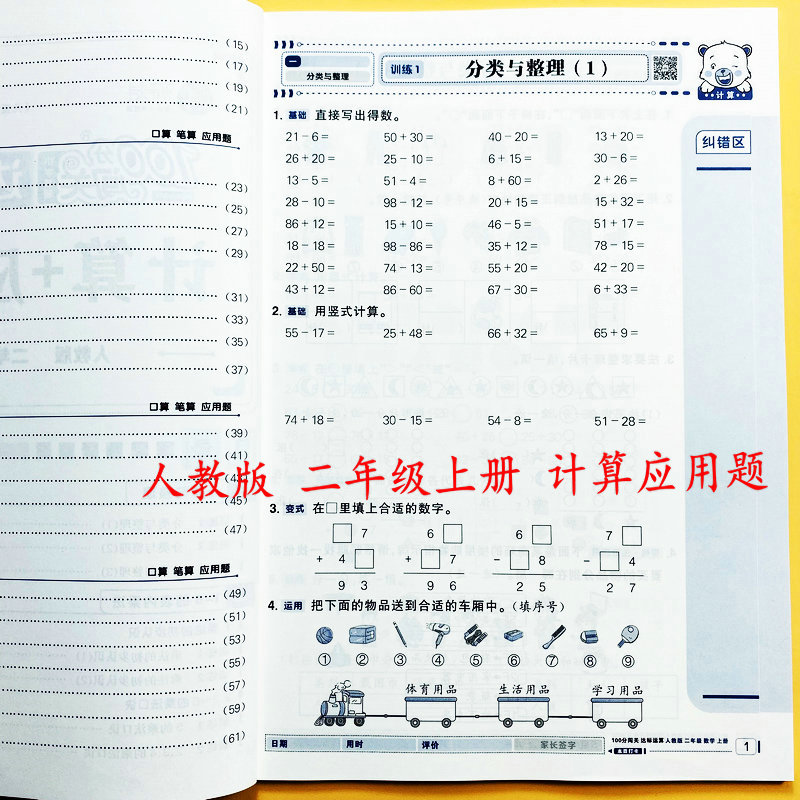 (15)
(17)
(19)
(21)
口算 笔算 应用题
(23)
(25)
(27)
(29)
(31)
(33)
(35)
(37)
口算 笔算 应用题
(39)
(41)
(43)
(45)
(47)
口算 笔算 应用题
(49)
(51)
(53)
(55)
(57)
(59)
(61)
一
分类与整理
训练1
分类与整理(1)
计算
纠错区
1. 基础 直接写出得数。
21-6= 50+30= 40-20= 13+20=
26+20= 25-10= 6+15= 30-6=
13-5= 51-4= 8+60= 2+26=
28-10= 98-12= 20+15= 15+32=
86+12= 15+10= 46-5= 51+17=
18-18= 98-86= 35+12= 78-15=
22+50= 74-13= 55+20= 42-20=
43+12= 86-60= 67-30= 6+33=
2. 基础 用竖式计算。
55-17= 25+48= 66+32= 65+9=
74+18= 30-15= 54-8= 51-28=
人教版 二年级上册 计算应用题
3. 变式 在□里填上合适的数字。
□7 6□ 6□ 7□
+4□ +□7 -□8 -□4
93 96 25 27
4. 运用 把下面的物品送到合适的车厢中。(填序号)
① ② ③ ④ ⑤ ⑥ ⑦ ⑧ ⑨
体育用品 生活用品 学习用品
日期 用时 评价 家长签字
100分闯关 达标运算 人教版 二年级 数学 上册
1